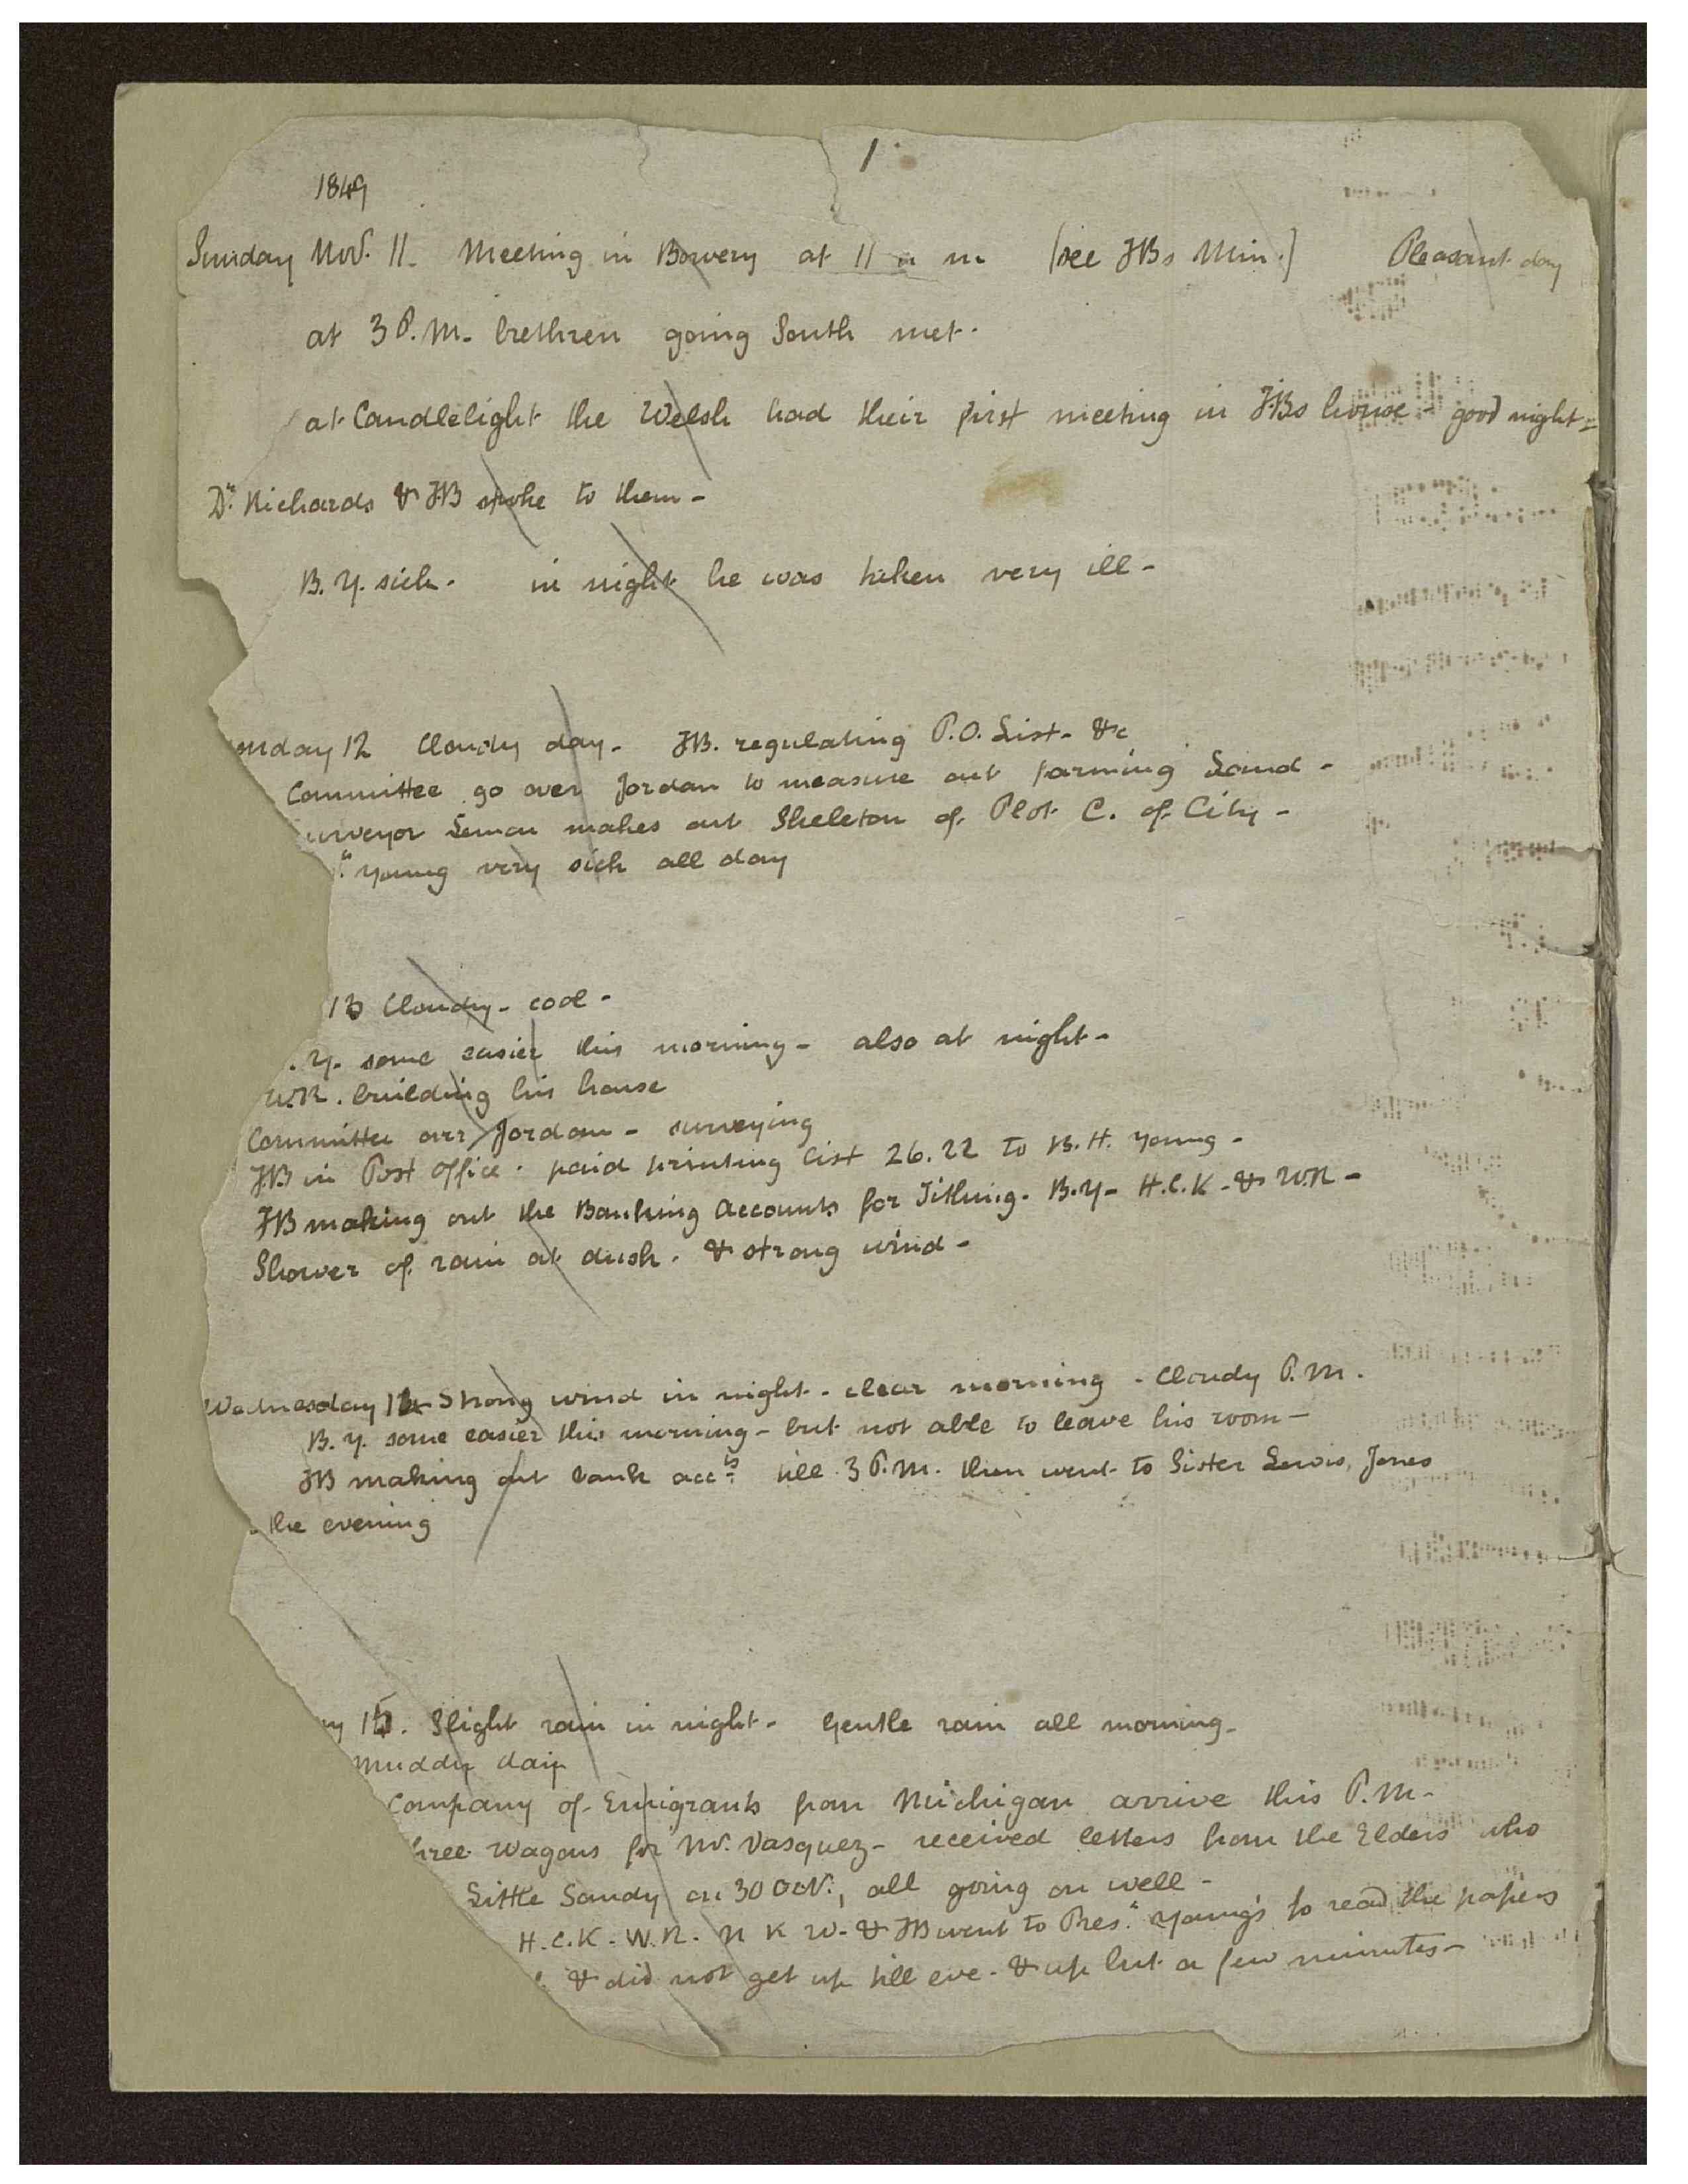 1
1849
Sunday Nov. 11. Meeting in Bowery at 11 a m (see TBs Min.) Pleasant day
at 3 P.M. brethren going South met.
at Candlelight the Welsh had their first meeting in TBs house - good night -
Dr. Richards & TB spoke to them -
B.Y. sick. in night he was taken very ill -
onday 12 Cloudy day - TB. regulating P.O. List - &c
Committee go over Jordan to measure out farming Land -
urveyor Lemon makes out Skeleton of Plot C. of City -
t. Young very sick all day
13 Cloudy - cool -
. Y. some easier this morning - also at night -
W.R. building his house
Committee over Jordan - surveying
TB in Post Office. paid printing list 26.22 to B.H. Young -
TB making out the Banking Accounts for Tithing. B.Y - H.C.K - & W.R -
Shower of rain at dusk. & strong wind -
Wednesday 14 Strong wind in night - clear morning - Cloudy P.M.
B.Y. some easier this morning - but not able to leave his room -
TB making out bank accts till 3 P.M. then went to Sister Lewis, Jones
the evening
ay 15. Slight rain in night - Gentle rain all morning -
muddy day
Company of Emigrants from Michigan arrive this P.M -
hree wagons for Mr. Vasquez - received letters from the Elders who
Little Sandy on 30 Oct., all going on well -
H.C.K - W.R. N K W - & TB went to Prest. Young's to read the papers
& did not get up till eve - & up but a few minutes -